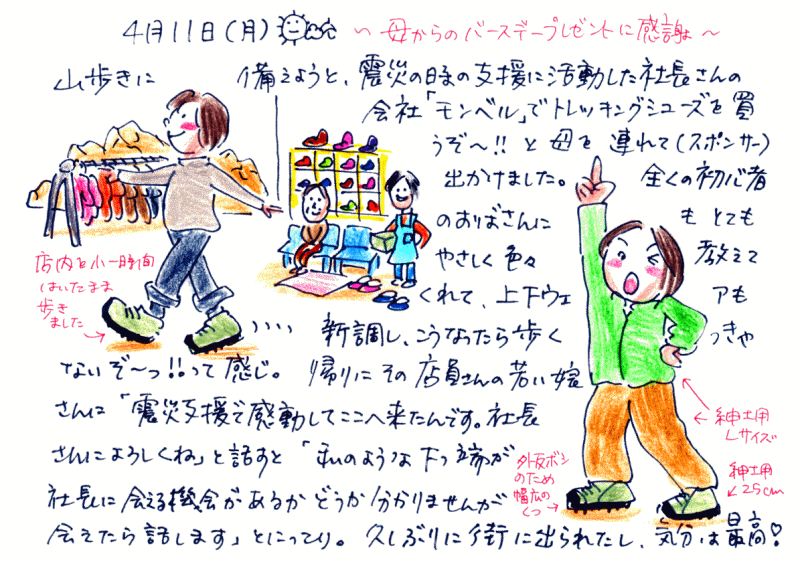 4月11日(月) ~母からのバースデープレゼントに感謝~
山歩きに 備えようと、震災の日本の支援に活動した社長さんの
会社「モンベル」でトレッキングシューズを買
うぞ〜!! と母を連れて(スポンサー)
出かけました。 全くの初心者
のおりばさんに も とても
やさしく色々 教えて
くれて、上下ウェ アも
新調し、こうなったら歩く っきゃ
ないぞ〜っ!!って感じ。 帰りにその店員さんの若い嬢
さんに「震災支援で感動してここへ来たんです。社長
さんによろしくね」と話すと「私のような下っ端が
社長に会える機会があるかどうか分かりませんが
会えたら話します」とにっこり。 久しぶりに街に出られたし、気分は最高!
店内を小一時間
はいたまま
歩き
ました
紳士用
Lサイズ
外反ボシ
のため
幅広の
くつ
紳士用
25cm